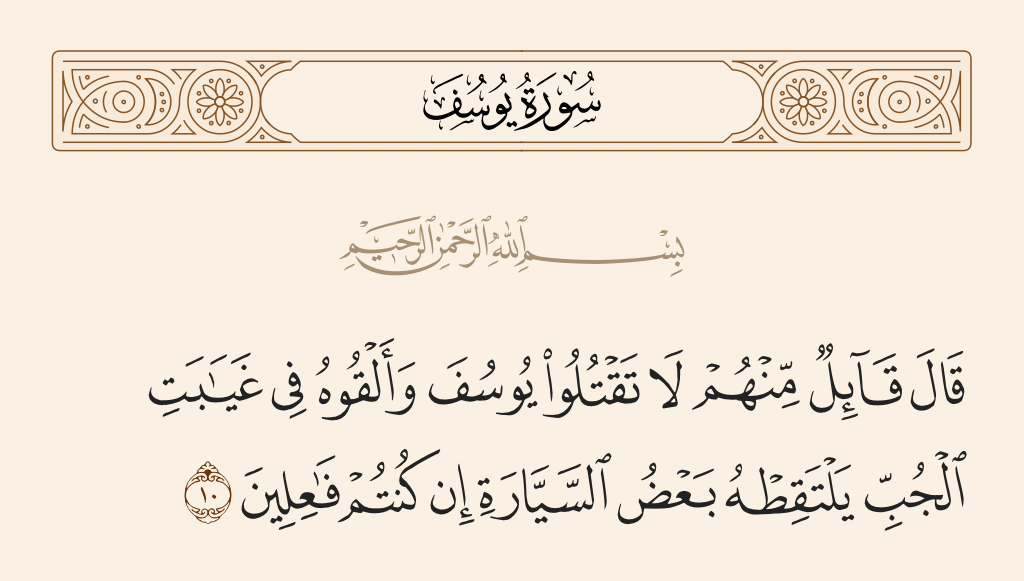 سُورَةُ يُوسُفَ
بِسْمِ ٱللَّهِ ٱلرَّحْمَٰنِ ٱلرَّحِيمِ
قَالَ قَآئِلٌ مِّنْهُمْ لَا تَقْتُلُوا۟ يُوسُفَ وَأَلْقُوهُ فِى غَيَـٰبَتِ
ٱلْجُبِّ يَلْتَقِطْهُ بَعْضُ ٱلسَّيَّارَةِ إِن كُنتُمْ فَـٰعِلِينَ ١٠